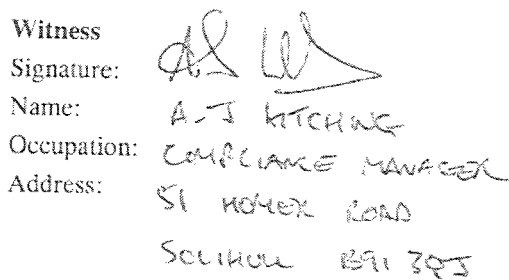 Witness
Signature:
Name: A-J KITCHING
Occupation: COMPLIANCE MANAGER
Address: 51 HOMER ROAD
SOLIHULL B91 3QJ